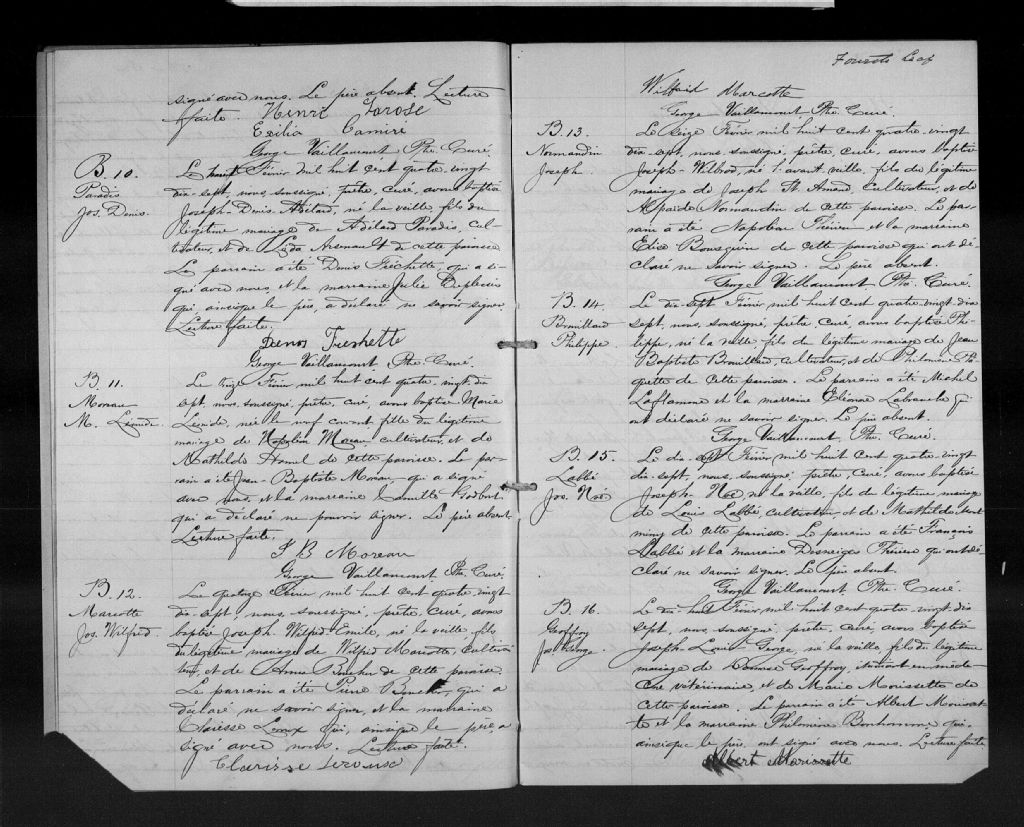 signé avec nous. Le père absent. Lecture
faite. Henri Larose
Exilia Camiré
George Vaillancourt Ptre. Curé
B. 10.
Paradis
Jos. Denis.
Le Février mil huit cent quatre vingt
dix-sept, nous, soussigné, prêtre, curé, avons baptisé
Joseph-Denis-Abilard, né la veille, fils du
légitime mariage de Adélard Paradis, cul-
tivateur, et de Léda Arsenault de cette paroisse
Le parrain a été Denis Fréchette qui a si-
gné avec nous, et la marraine Julie Duplessis
qui, ainsi que le père, a déclaré ne savoir signer.
Lecture faite.
Denis Freshette
George Vaillancourt Ptre. Curé.
B. 11.
Moreau
M. Léonide.
Le treize Février mil huit cent quatre vingt dix
sept, nous, soussigné, prêtre, curé, avons baptisé Marie
Léonide, née le neuf courant fille du légitime
mariage de Napoléon Moreau, cultivateur, et de
Mathilde Hamel de cette paroisse. Le par-
rain a été Jean-Baptiste Moreau, qui a signé
avec nous, et la marraine Camille Godbout
qui a déclaré ne pouvoir signer. Le père absent
Lecture faite.
J B Moreau
George Vaillancourt Ptre. Curé.
B. 12.
Marcotte
Jos. Wilfrid.
Le quatorze Février mil huit cent quatre vingt
dix-sept, nous, soussigné, prêtre, curé, avons
baptisé Joseph Wilfrid Emile, né la veille, fils
du légitime mariage de Wilfrid Marcotte, cultiva-
teur, et de Anna Boucher de cette paroisse.
Le parrain a été Pierre Boucher, qui a
déclaré ne savoir signer, et la marraine
Clarisse Leroux qui, ainsi que le père, a
signé avec nous. Lecture faite.
Clarisse Lerouse
Fourth Leaf
Wilfrid Marcotte
George Vaillancourt Ptre. Curé.
B. 13.
Normandin
Joseph.
Le seize Février mil huit cent quatre-vingt
dix-sept, nous, soussigné, prêtre, curé, avons baptisé
Joseph-Wilbrod, né l'avant veille, fils du légitime
mariage de Joseph St. Amand, cultivateur, et de
Alpaïde Normandin de cette paroisse. Le par-
rain a été Napoléon Thérien et la marraine
Eliza Bousquin de cette paroisse qui ont dé-
claré ne savoir signer. Le père absent.
George Vaillancourt Ptre. Curé.
B. 14.
Brouillard
Philippe.
Le dix-sept Février mil huit cent quatre vingt dix
sept, nous, soussigné, prêtre, curé, avons baptisé Phi-
lippe, né la veille, fils du légitime mariage de Jean
Baptiste Brouillard, cultivateur, et de Philomène Pa-
quette de cette paroisse. Le parrain a été Michel
Laflamme et la marraine Eléonore Labranche qui
ont déclaré ne savoir signer. Le père absent.
George Vaillancourt, Ptre. Curé.
B. 15.
Labbé
Jos. Noé
Le dix-sept Février mil huit cent quatre vingt
dix-sept, nous, soussigné, prêtre, curé, avons baptisé
Joseph-Noé, né la veille, fils du légitime mariage
de Louis Labbé cultivateur, et de Mathilde
de cette paroisse. Le parrain a été François
Labbé et la marraine Desneiges Thérien qui ont dé-
claré ne savoir signer. Le père absent.
George Vaillancourt, Ptre. Curé.
B. 16.
Geoffroy
Jos. George
Le dix-huit Février mil huit cent quatre vingt dix
sept, nous, soussigné, prêtre, curé, avons baptisé
Joseph-Louis-George, né la veille, fils du légitime
mariage de Geoffroy, étudiant en méde-
cine vétérinaire, et de Marie Morissette de
cette paroisse. Le parrain a été Albert Morisset-
te et la marraine Philomène Bonhomme qui,
ainsi que le père, ont signé avec nous. Lecture faite
Albert Morissette